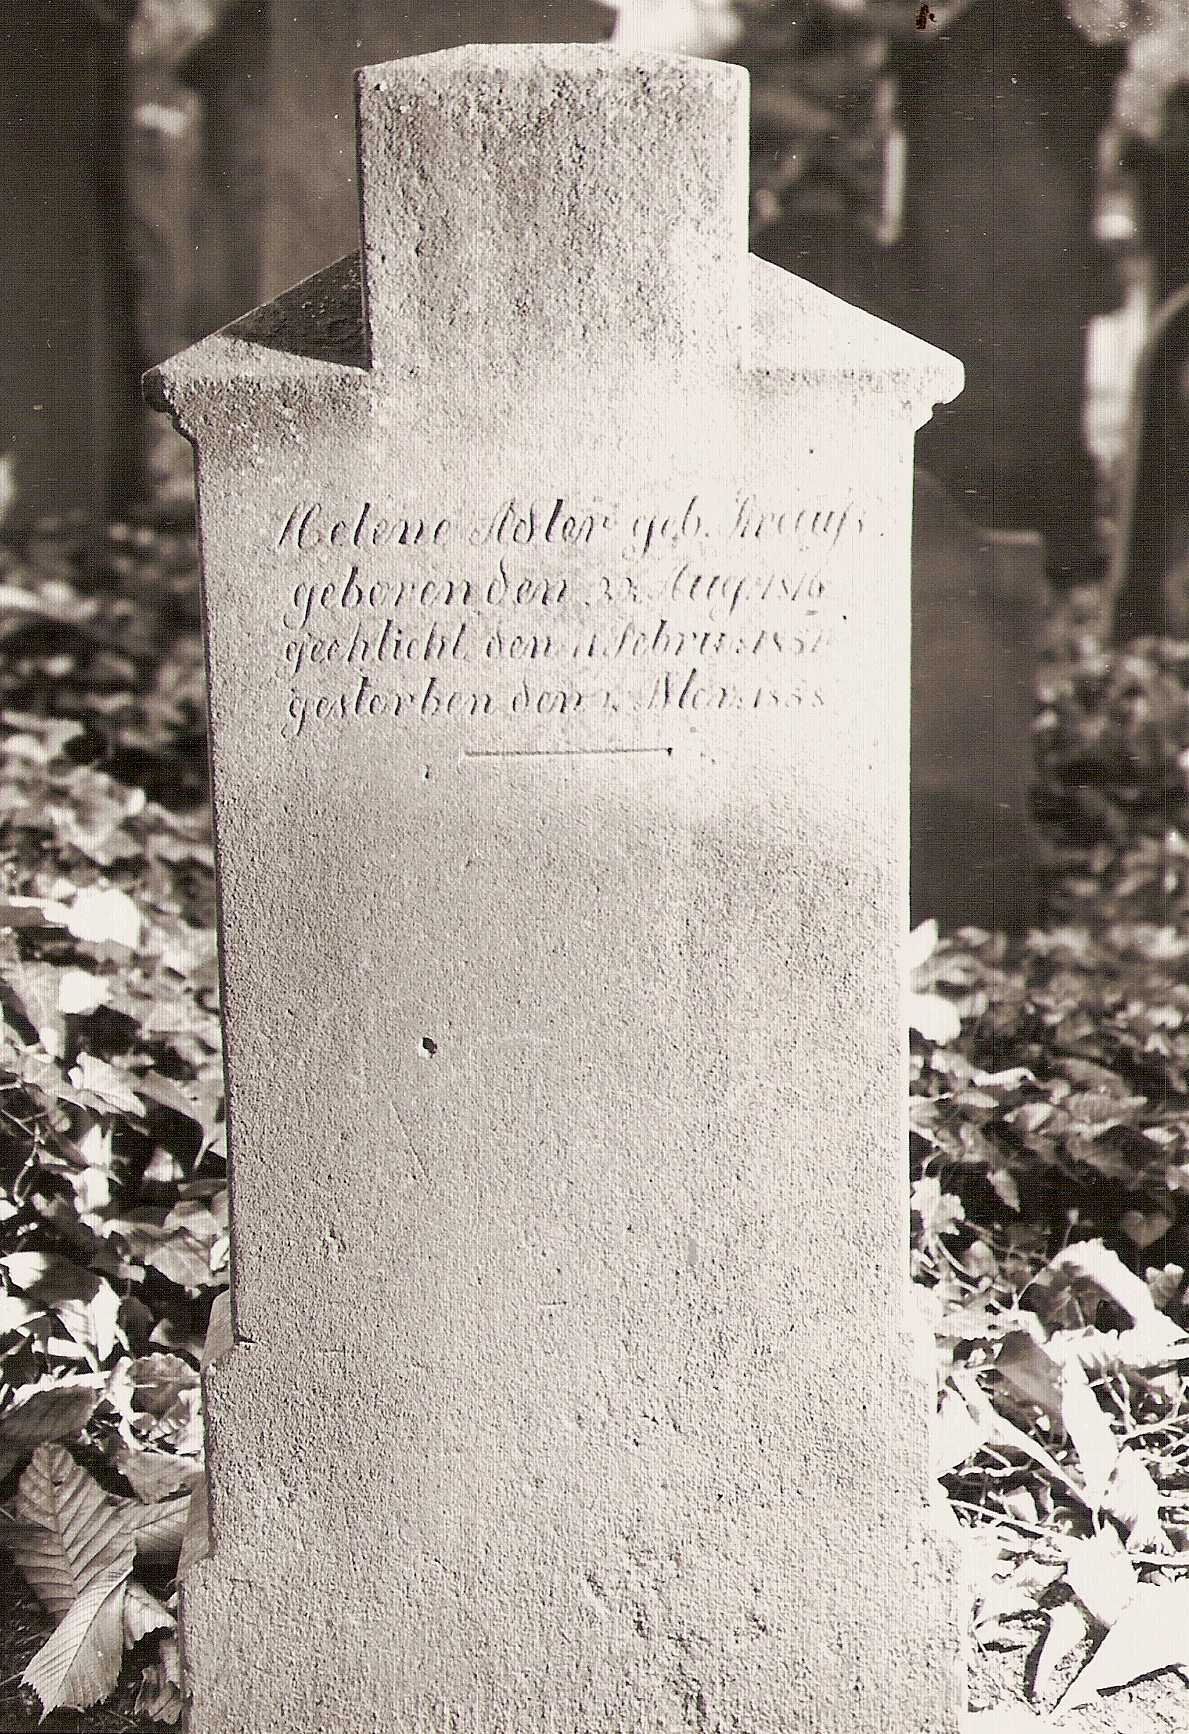 Helene Adler geb. Strauß
geboren den 22. Aug. 1816
geehlicht den 11. Febru: 1851
gestorben den